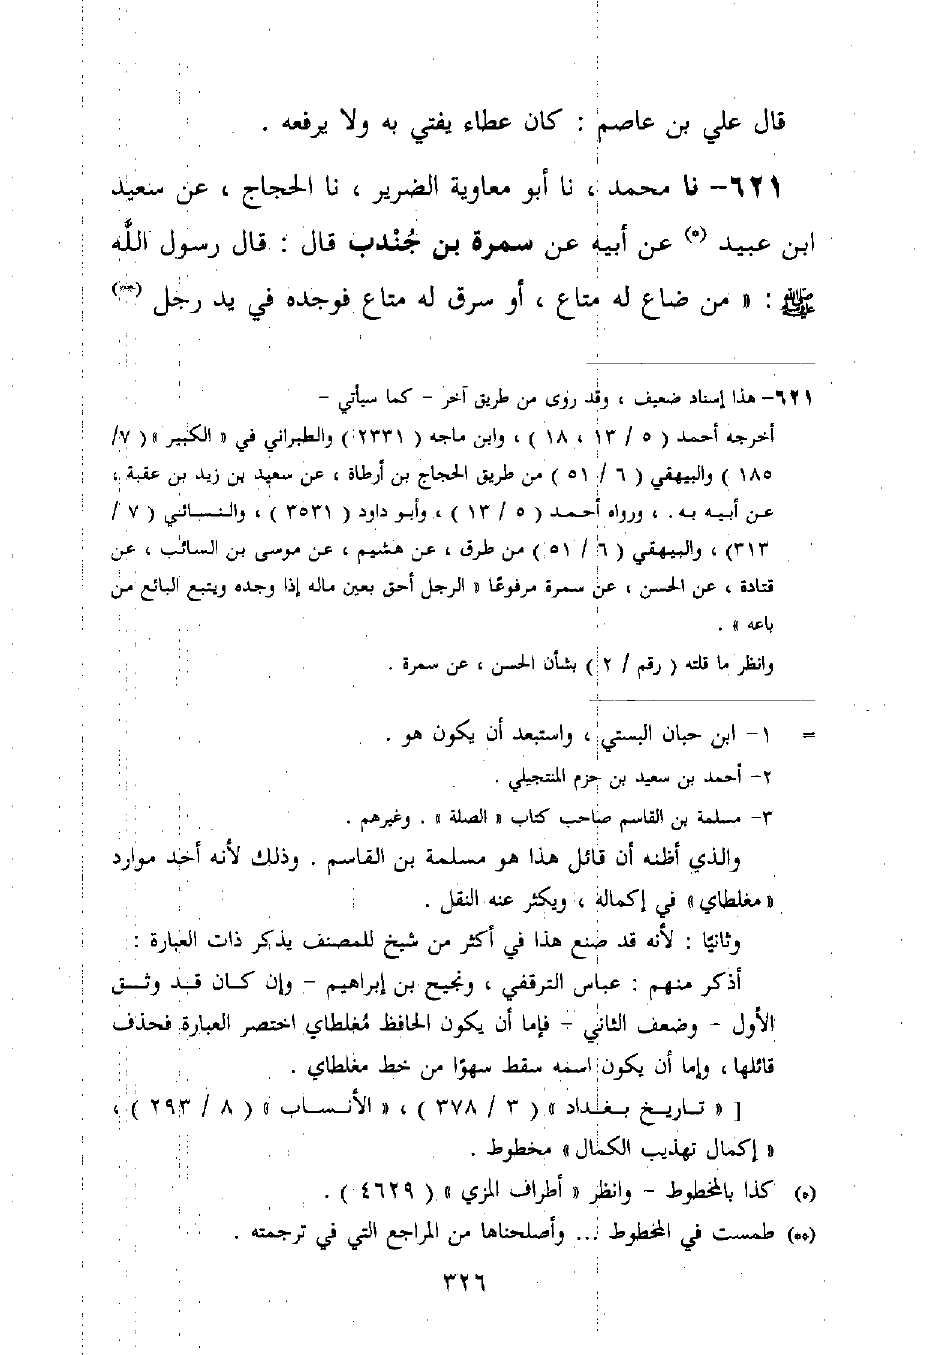 قال علي بن عاصم : كان عطاء يفتي به ولا يرفعه .
٦٢١- نا محمد ، نا أبو معاوية الضرير ، نا الحجاج ، عن سعيد
ابن عبيد (*) عن أبيه عن سمرة بن جُنْدب قال : قال رسول اللَّه
ﷺ : « من ضاع له متاع ، أو سرق له متاع فوجده في يد رجل (**)
٦٢١- هذا إسناد ضعيف ، وقد روى من طريق آخر - كما سيأتي -
أخرجه أحمد ( ٥ / ١٣ ، ١٨ ) ، وابن ماجه ( ٢٣٣١ ) والطبراني في « الكبير » ( ٧/
١٨٥ ) والبيهقي ( ٦ / ٥١ ) من طريق الحجاج بن أرطاة ، عن سعيد بن زيد بن عقبة ،
عن أبيه به . ، ورواه أحمد ( ٥ / ١٣ ) ، وأبو داود ( ٣٥٣١ ) ، والنسائي ( ٧ /
٣١٣) ، والبيهقي ( ٦ / ٥١ ) من طرق ، عن هشيم ، عن موسى بن السائب ، عن
قتادة ، عن الحسن ، عن سمرة مرفوعًا « الرجل أحق بعين ماله إذا وجده ويتبع البائع من
باعه » .
وانظر ما قلته ( رقم / ٢ ) بشأن الحسن ، عن سمرة .
= ١- ابن حبان البستي ، واستبعد أن يكون هو .
٢- أحمد بن سعيد بن حزم المنتجيلي .
٣- مسلمة بن القاسم صاحب كتاب « الصلة » . وغيرهم .
والذي أظنه أن قائل هذا هو مسلمة بن القاسم . وذلك لأنه أحد موارد
« مغلطاي » في إكماله ، ويكثر عنه النقل .
وثانيًا : لأنه قد صنع هذا في أكثر من شيخ للمصنف يذكر ذات العبارة :
أذكر منهم : عباس الترقفي ، ونجيح بن إبراهيم - وإن كان قد وثق
الأول - وضعف الثاني - فإما أن يكون الحافظ مُغلطاي اختصر العبارة فحذف
قائلها ، وإما أن يكون اسمه سقط سهوًا من خط مغلطاي .
[ « تاريخ بغداد » ( ٣ / ٣٧٨ ) ، « الأنساب » ( ٨ / ٢٩٣ ) ،
« إكمال تهذيب الكمال » مخطوط .
(*) كذا بالمخطوط - وانظر « أطراف المزي » ( ٤٦٢٩ ) .
(**) طمست في المخطوط ... وأصلحناها من المراجع التي في ترجمته .
٣٢٦